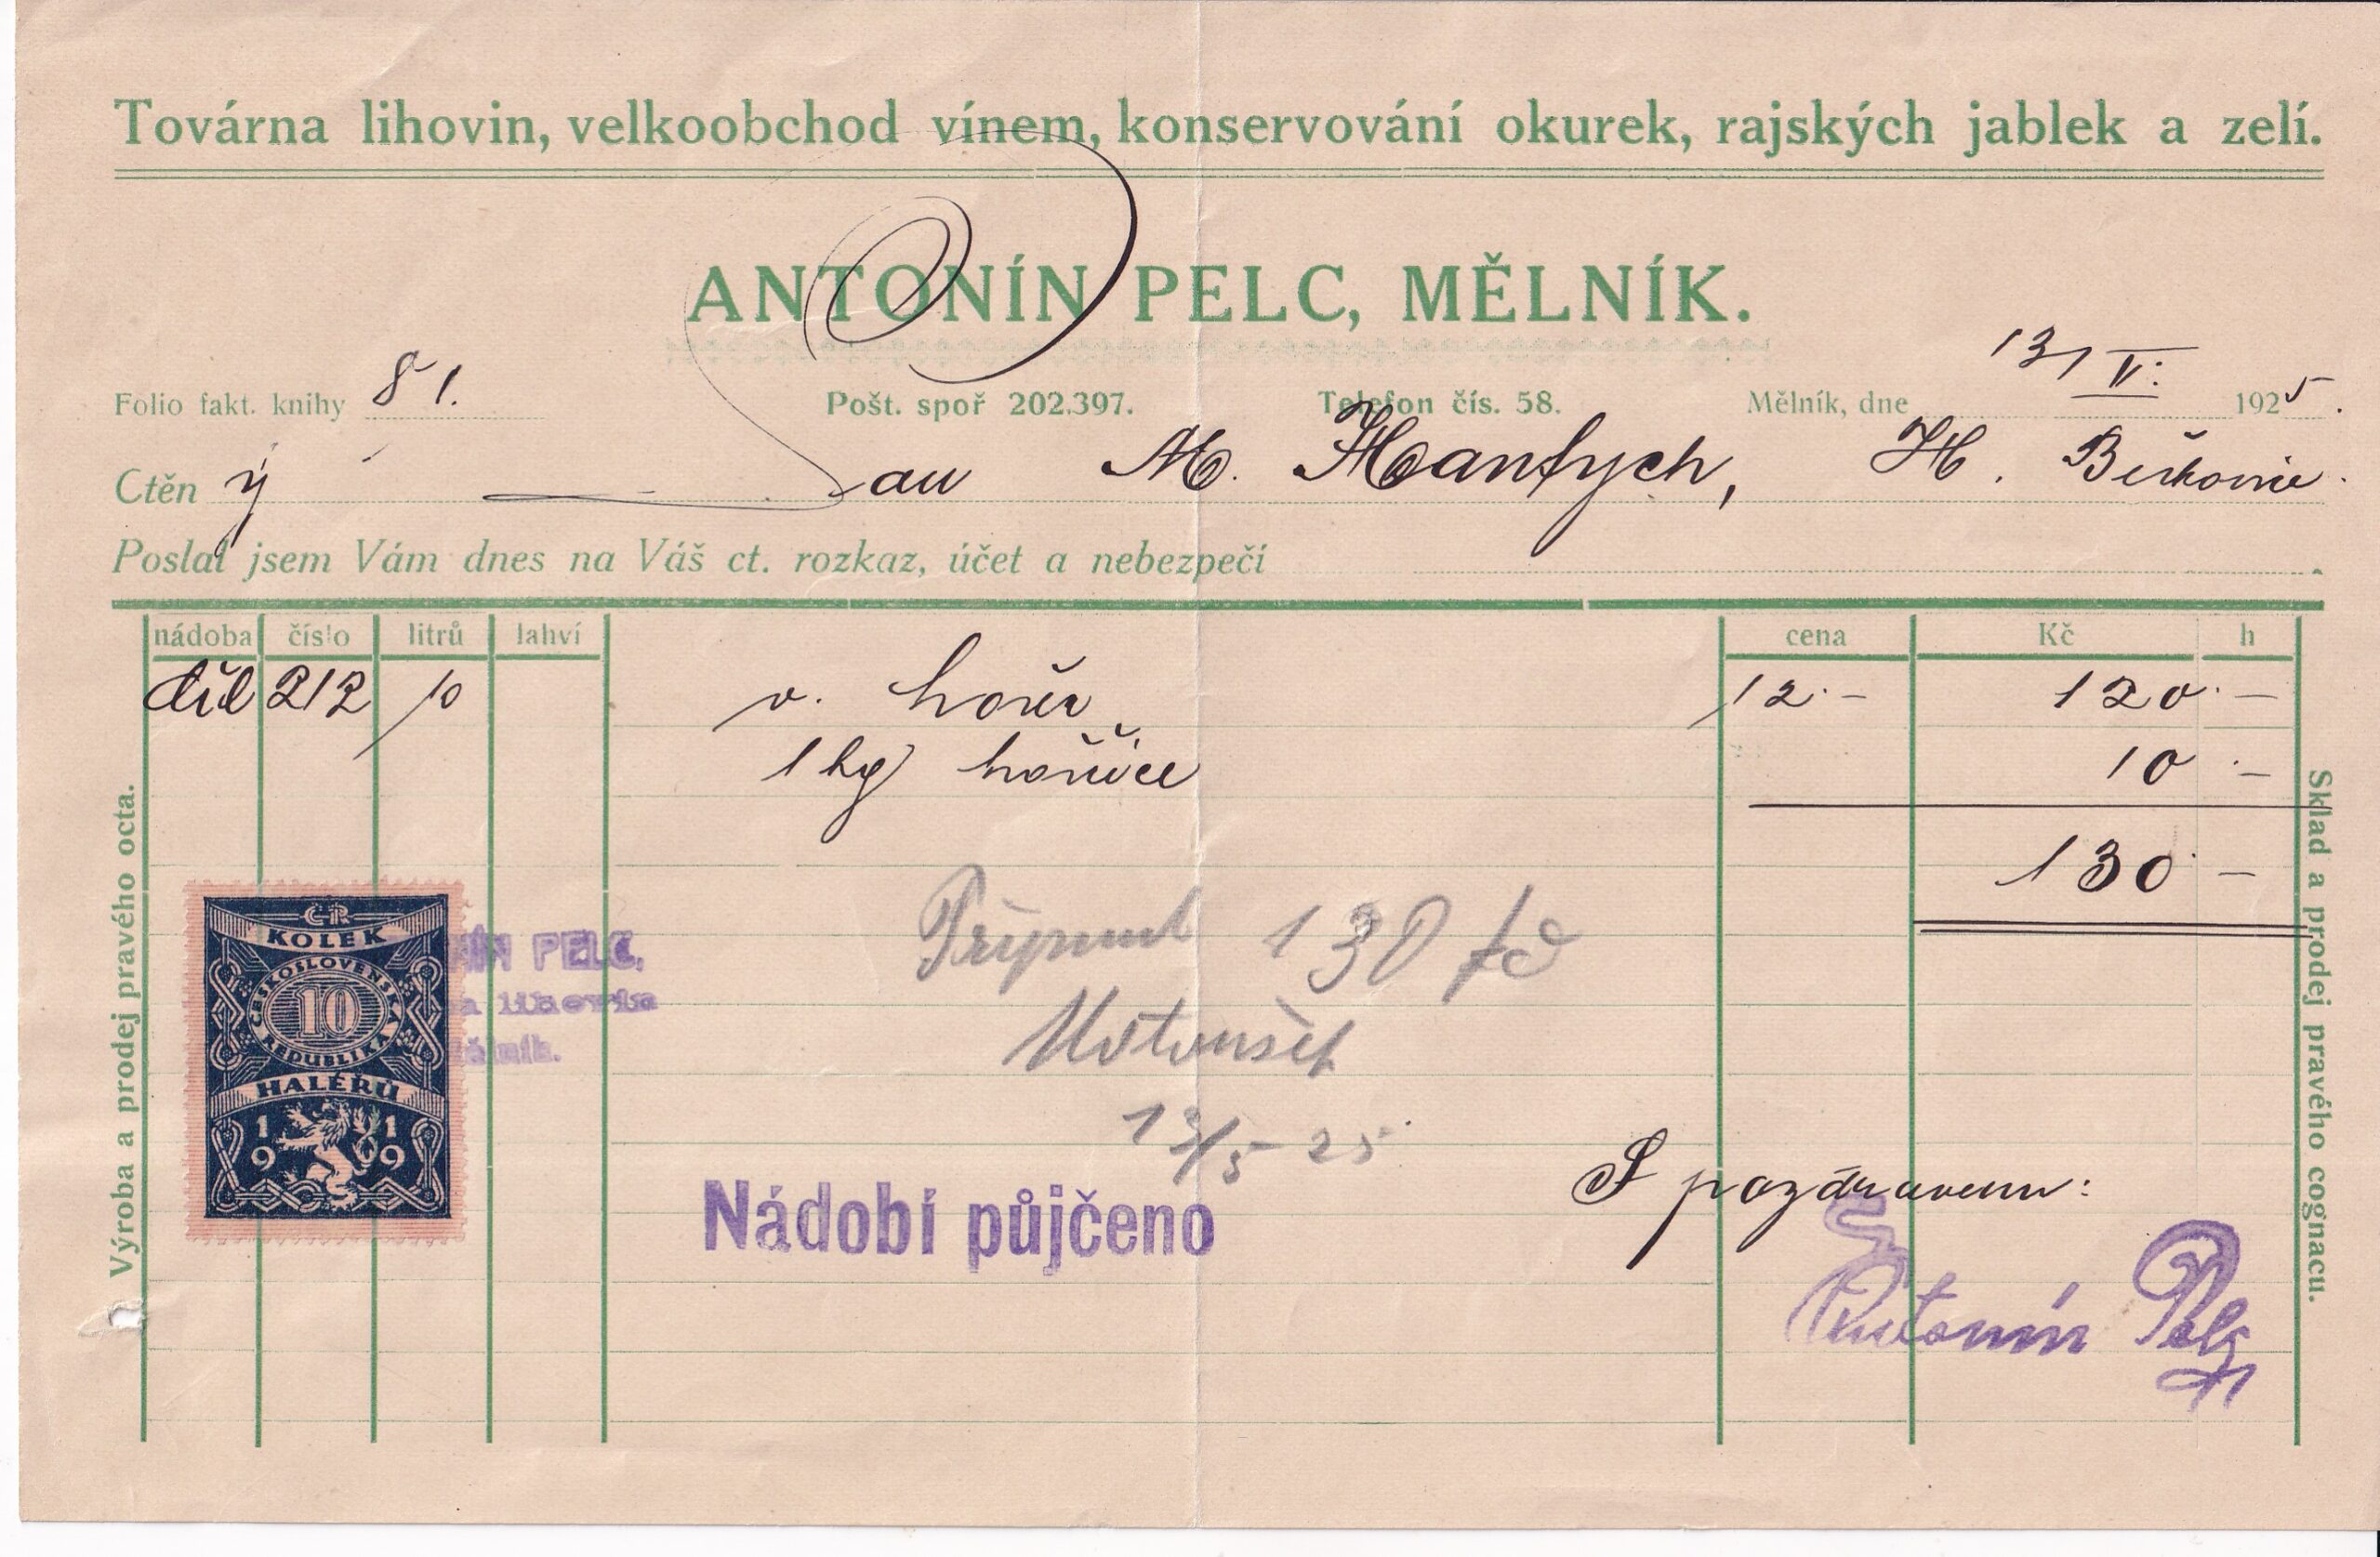 Továrna lihovin, velkoobchod vínem, konservování okurek, rajských jablek a zelí.
ANTONÍN PELC, MĚLNÍK.
Folio fakt. knihy 81. Pošt. spoř 202.397. Telefon čís. 58. Mělník, dne 13/V. 1925.
Ctěný Pan M. Hantych, H. Beřkovice.
Poslal jsem Vám dnes na Váš ct. rozkaz, účet a nebezpečí
nádoba číslo litrů lahví cena Kč h
212 10 v. hořká 12.- 120.-
1 kg hořčice 10.-
130.-
Výroba a prodej pravého octa.
Sklad a prodej pravého cognacu.
ČR
KOLEK
ČESKOSLOVENSKÁ
10
REPUBLIKA
HALÉŘŮ
1919
NÍN PELC,
a lihovin
ělník.
130
13/5 25
Nádobí půjčeno
S pozdravem:
Antonín Pelc